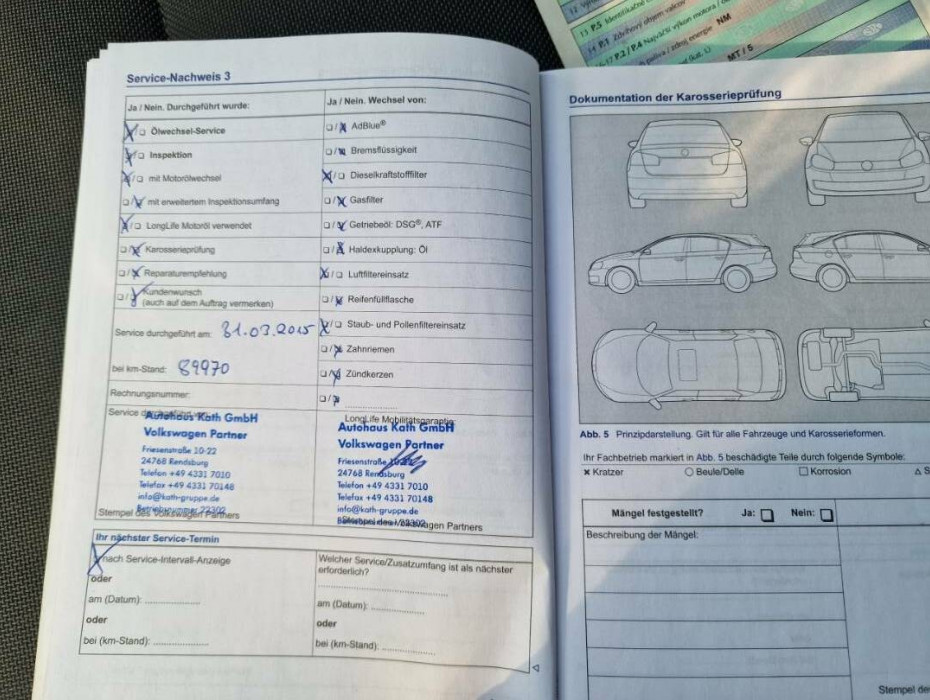 13 P.5 Identifikačné č
14 P.1 Zdvihový objem valcov
P.2 / P.4 Najväčší výkon motora / o
palivo / zdroj energie NM
MT / 5
Service-Nachweis 3
Ja / Nein. Durchgeführt wurde:
Ja / Nein. Wechsel von:
Ölwechsel-Service
AdBlue®
Inspektion
Bremsflüssigkeit
mit Motorölwechsel
Dieselkraftstofffilter
mit erweitertem Inspektionsumfang
Gasfilter
LongLife Motoröl verwendet
Getriebeöl: DSG®, ATF
Karosserieprüfung
Haldexkupplung: Öl
Reparaturempfehlung
Luftfiltereinsatz
Kundenwunsch
(auch auf dem Auftrag vermerken)
Reifenfüllflasche
Service durchgeführt am: 31.03.2015
Staub- und Pollenfiltereinsatz
Zahnriemen
bei km-Stand: 89970
Zündkerzen
Rechnungsnummer:
Service durchgeführt von:
LongLife Mobilitätsgarantie:
Autohaus Kath GmbH
Volkswagen Partner
Friesenstraße 10-22
24768 Rendsburg
Telefon +49 4331 7010
Telefax +49 4331 70148
info@kath-gruppe.de
Betriebsnummer 22302
Stempel des Volkswagen Partners
Autohaus Kath GmbH
Volkswagen Partner
Friesenstraße 10-22
24768 Rendsburg
Telefon +49 4331 7010
Telefax +49 4331 70148
info@kath-gruppe.de
Betriebsnummer 22302
Stempel des Volkswagen Partners
Ihr nächster Service-Termin
nach Service-Intervall-Anzeige
oder
am (Datum):
oder
bei (km-Stand):
Welcher Service/Zusatzumfang ist als nächster
erforderlich?
am (Datum):
oder
bei (km-Stand):
Dokumentation der Karosserieprüfung
Abb. 5 Prinzipdarstellung. Gilt für alle Fahrzeuge und Karosserieformen.
Ihr Fachbetrieb markiert in Abb. 5 beschädigte Teile durch folgende Symbole:
Kratzer
Beule/Delle
Korrosion
S
Mängel festgestellt? Ja: Nein:
Beschreibung der Mängel:
Stempel de